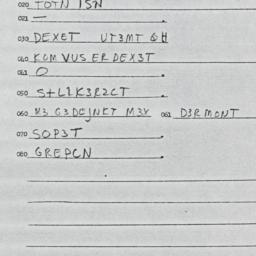 020 TOTN ISN
021 —
030 DEXET UT3MT GH
040 KOM VUS ER DEX3T
041 O
050 S+L1K3R2CT
060 M3 G3DCJNKT M3Y 061 D3RMONT
070 SOP3T
080 GREPCN